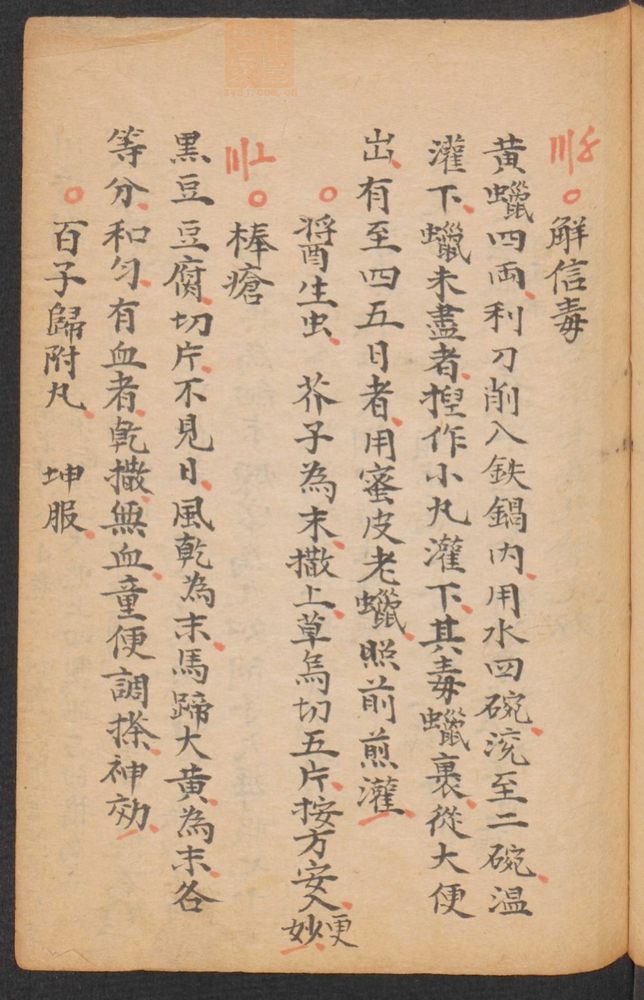 〣〥○解信毒
黄蠟四両利刀削入鉄鍋内用水四碗浣至二碗温
灌下蠟未盡者揑作小丸灌下其毒蠟裹從大便
出有至四五日者用蜜皮老蠟照前煎灌
○醤生虫 芥子為末撒上草烏切五片按方安入更妙
〣〦○棒瘡
黒豆豆腐切片不見日風乾為末馬蹄大黄為末各
等分和匀有血者乾撒無血童便調搽神効
○百子歸附丸 坤服